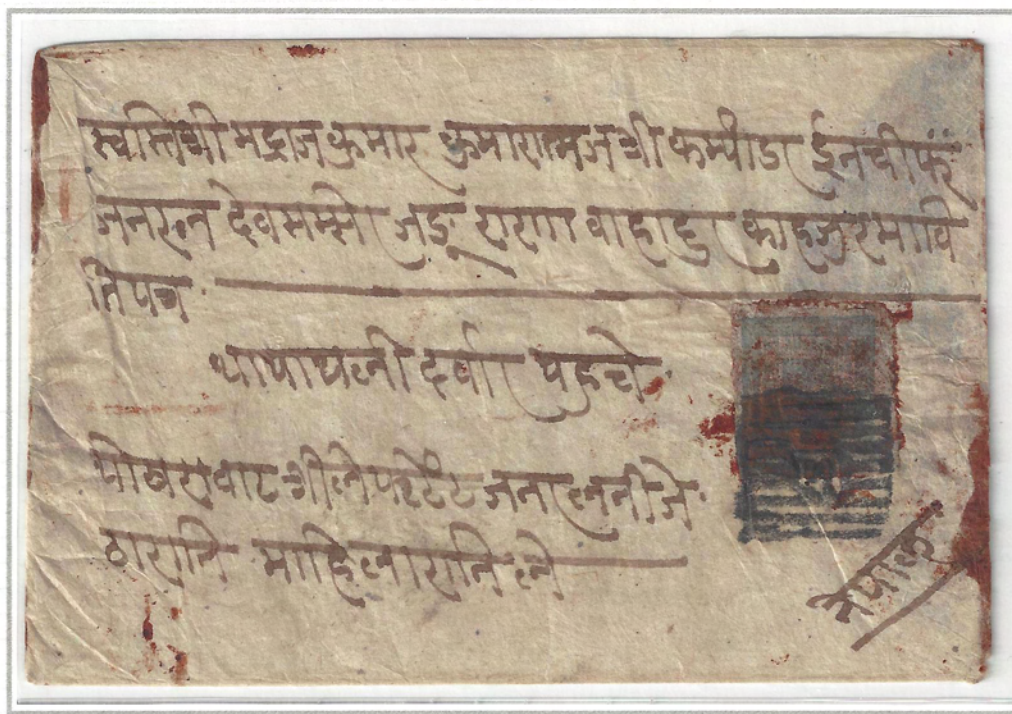 स्वस्तिश्री मद्राजकुमार कुमारात्मज श्री कम्याडर ईनचीफ
जनरल देवसम्सेर जङ्ग राणा वाहादुर का हजुरमा वि
न्तिपत्र
थापाथली दर्वार पुहचे
पोखरावाट श्री लेफ्टेटेंट जनरालनी जे
ठारानि माहिलारानिले
नेपाल